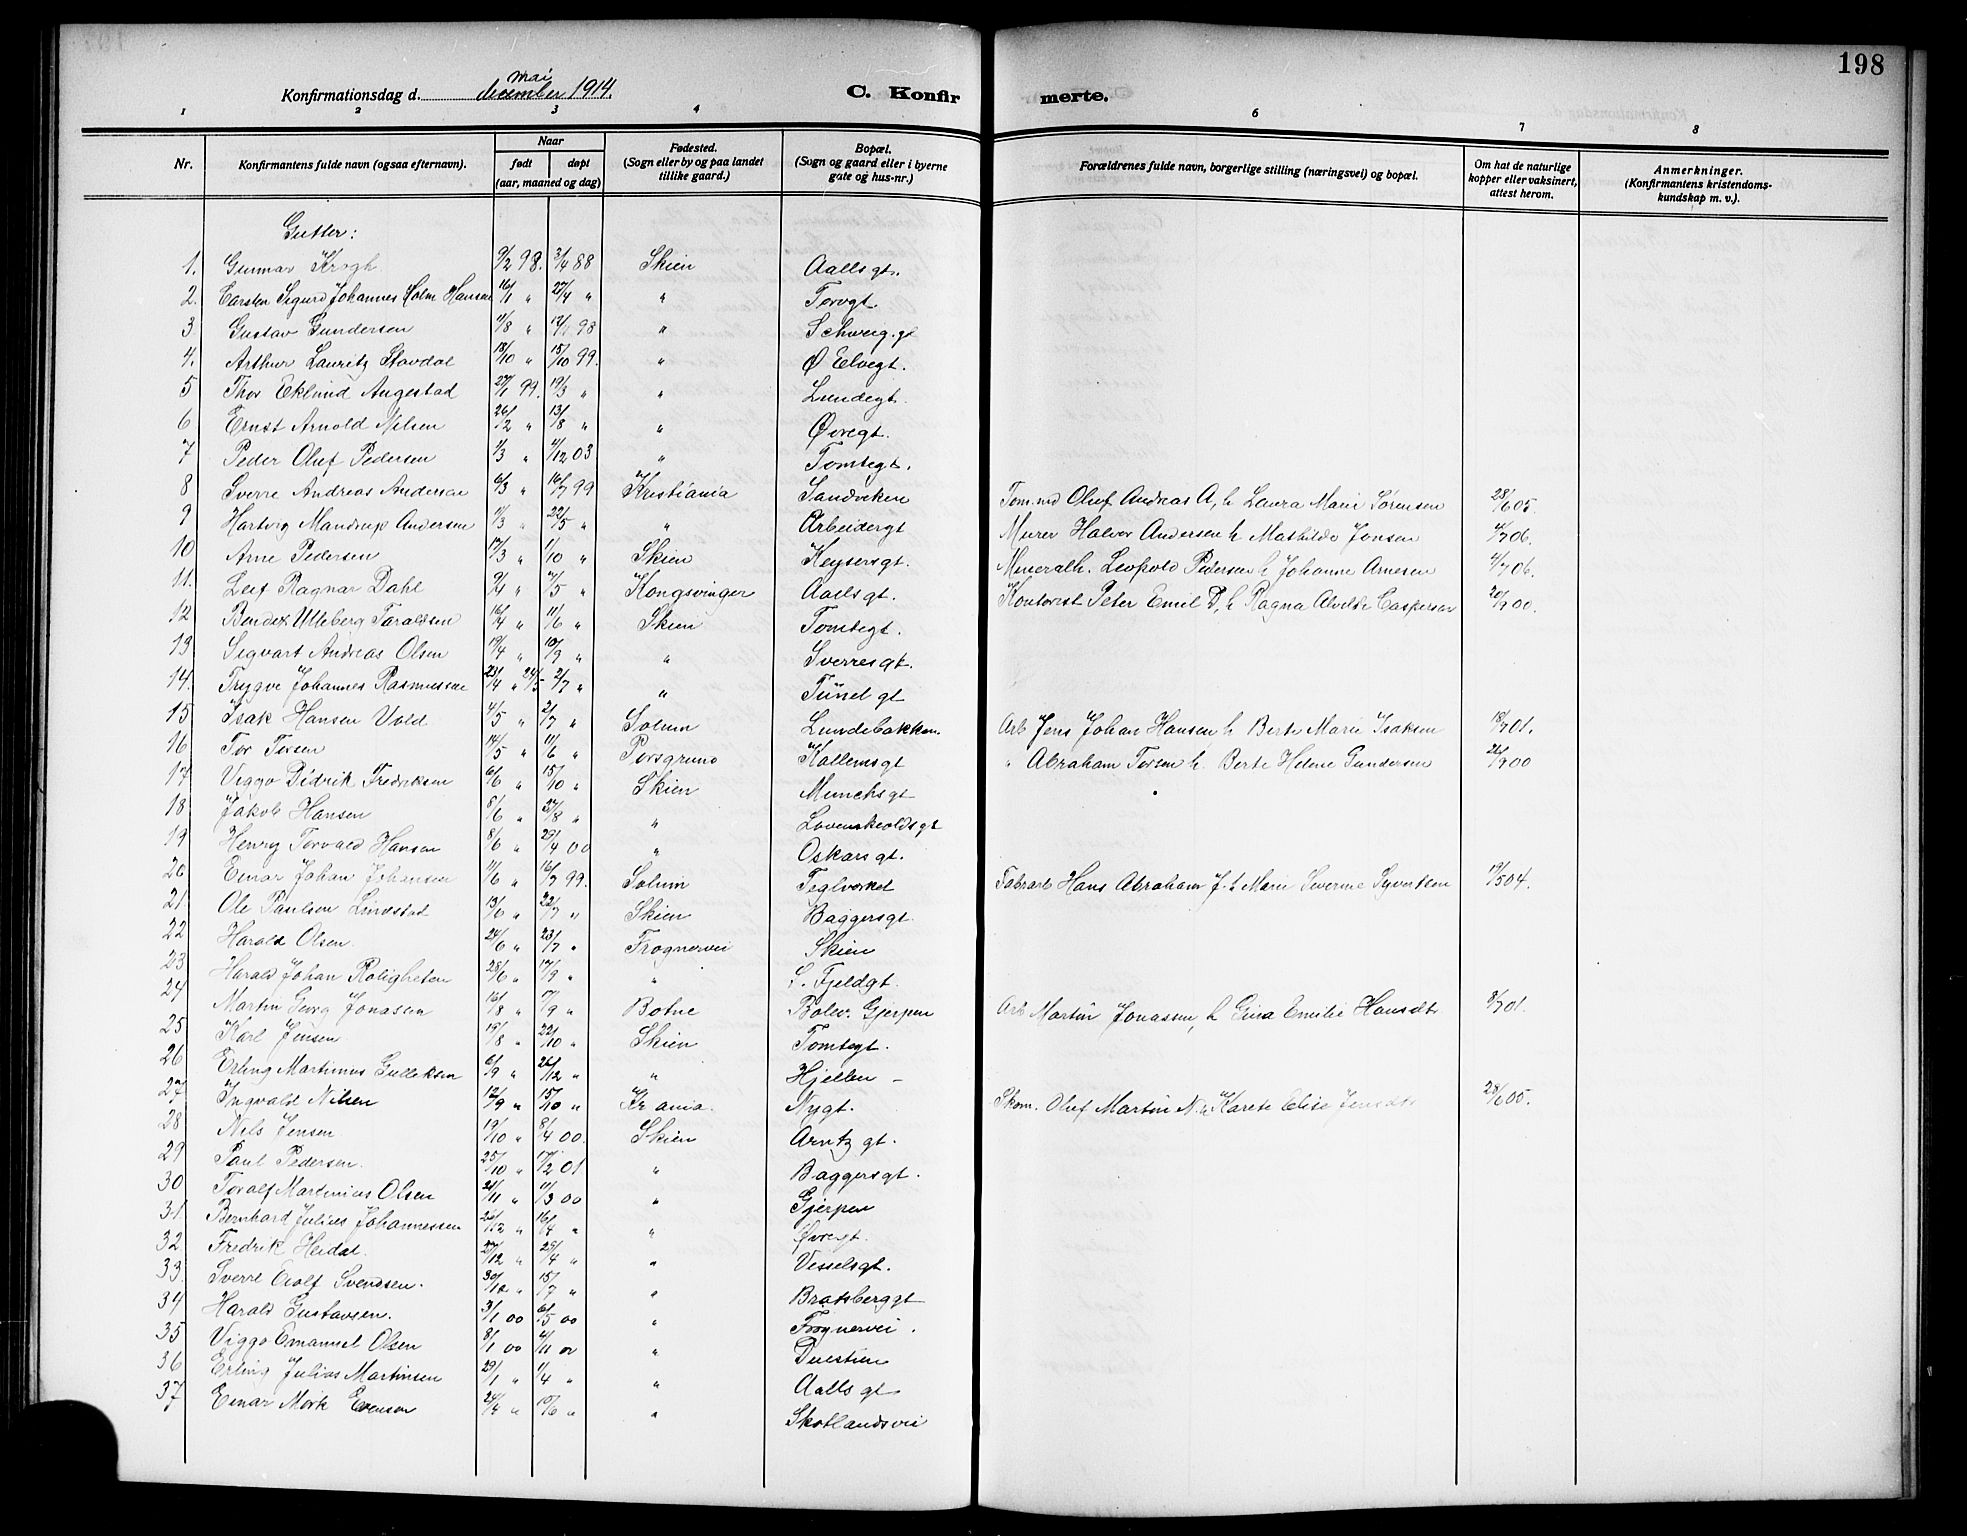 198
mai
Konfirmationsdag d. december 1914. C. Konfirmerte.
1 2 3 4 6 7 8
Nr. Konfirmantens fulde navn (ogsaa efternavn). Naar født døpt (aar, maaned og dag) Fødested. (Sogn eller by og paa landet tillike gaard.) Bopæl. (Sogn og gaard eller i byerne gate og hus-nr.) Forældrenes fulde navn, borgerlige stilling (næringsvei) og bopæl. Om hat de naturlige kopper eller vaksinert, attest herom. Anmerkninger. (Konfirmantens kristendomskundskap m. v.).
Gutter:
1. Gunnar Krogh 9/2 98. 3/4 88 Skien Aallsgt.
2. Carsten Sigurd Johannes Holm Hansen 16/1 " 27/4 " " Torvgt.
3 Gustav Gundersen 11/8 " 98 " Schweig. gt
4. Arthur Lauritz Stavdal 18/10 " 15/10 99. " Ø Elvegt.
5 Thor Eklund Augestad 27/1 99. 19/3 " " Lundegt.
6 Ernst Arnold Nilsen 26/2 " 13/8 " " Øvregt.
7 Peder Oluf Pedersen 1/3 " 4/12 03 " Tomtegt.
8 Sverre Andreas Andersen 6/3 " 16/7 99 Kristiania Sandviken Tom.md Oluf Andreas A, h Laura Marie Sørensen 28/6 05.
9 Hartvig Mandrup Andersen 11/3 " 22/5 " " Arbeidergt Murer Halvor Andersen h Mathilde Jonsen 4/7 06.
10 Arne Pedersen 17/3 " 1/10 " Skien Keysersgt. Mineralh. Leopold Pedersen h Johanne Arnesen 4/7 06.
11. Leif Ragnar Dahl 9/4 " /5 " Kongsvinger Aallsgt. Kontorist Peter Emil D, h Ragna Alvilde Caspersen 20/9 00.
12 Bendex Ulleberg Taraldsen 16/4 " 11/6 " Skien Tomtegt.
13 Sigvart Andreas Olsen 19/4 " 10/9 " " Sverresgt.
14. Trygve Johannes Rasmussen 23/4 " 24/5 2/7 " " Tünel gt
15 Isak Hansen Vold 4/5 " 2/7 " Solum Lundebakken. Arb Jens Johan Hansen h Berte Marie Isaksen 18/7 01.
16 Tor Torsen 14/5 " 11/6 " Porsgrund Kallemsgt " Abraham Torsen h. Berte Helene Gundersen 26/9 00
17 Viggo Didrik Fredriksen 6/6 " 15/10 " Skien Munchsgt
18 Jakob Hansen 8/6 " 27/8 " " Lovenskioldsgt
19 Henry Torvald Hansen 8/6 " 29/4 00 " Oskarsgt.
20 Einar Johan Johansen 11/6 " 16/7 99. Solum Teglverket Fabrarb Hans Abraham J. h Marie Severine Syvertsen 19/5 04.
21 Ole Paulsen Lindstad 13/6 " 22/7 " Skien Baggersgt.
22 Harald Olsen 24/6 " 23/7 " Frognervei Skien
23 Harald Johan Roligheten 28/6 " 17/9 " " L. Fjeldgt.
24 Martin Georg Jonassen 16/8 " 17/9 " Botne Bolev. Gjerpen Arb Martin Jonassen, h Gina Emilie Hansdt. 8/7 01.
25 Karl Jensen 19/8 " 22/10 " Skien Tomtegt.
26 Erling Martinius Gulleksen 6/9 " 26/12 " " Hjellen -
27 Ingvald Nilsen 12/9 " 15/10 " Kr ania. Nygt. Skom. Oluf Martin N. h Karete Elise Jensdt. 28/6 05.
28 Nils Jensen 19/10 " 8/4 00. Skien Arntz gt.
29 Paul Pedersen. 25/10 " 17/2 01 " Baggersgt.
30 Toralf Martinius Olsen 21/11 " 11/3 00 " Gjerpen
31. Bernhard Julius Johannessen 26/12 " 16/4 " " Øvregt.
32 Fredrik Heidal. 27/12 " 29/4 " " Vesselsgt.
33. Sverre Svendsen. 30/12 " 15/7 " " Bratsberggt
34 Harald Gustavsen. 3/1 00 6/5 00 " Frognervei.
35 Viggo Emanuel Olsen 8/1 00 4/11 00 " Duestien
36 Erling Julius Martinsen 29/1 " 1/4 " " Aalls gt
37 Einar Mørk Evensen 24/4 " /6 " " Skotlandsvei